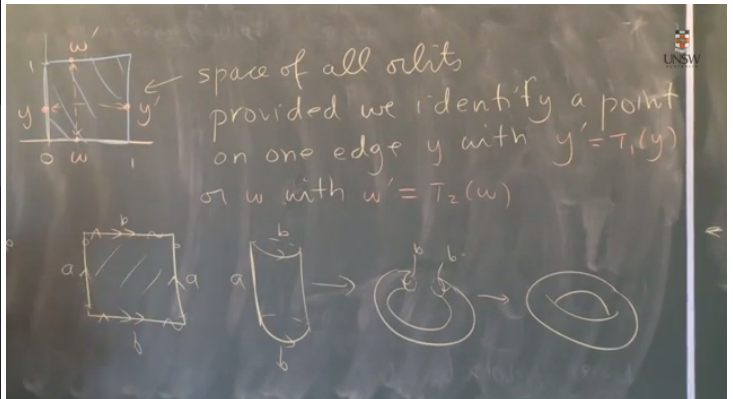 w'
1
y
y'
0
w
1
space of all orbits
provided we identify a point
on one edge y with y' = T₁(y)
or w with w' = T₂(w)
UNSW
b
a
a
b
b
a
b
b
b